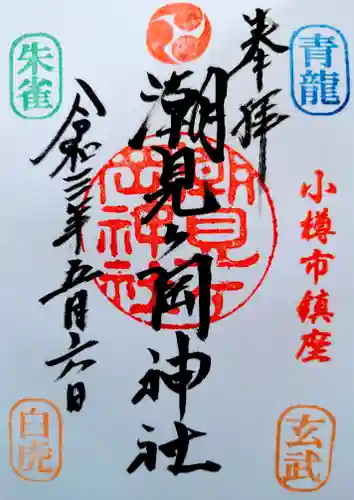 青龍
奉拝
小樽市鎮座
潮見ヶ岡神社
潮見ヶ岡神社
令和三年五月六日
朱雀
玄武
白虎